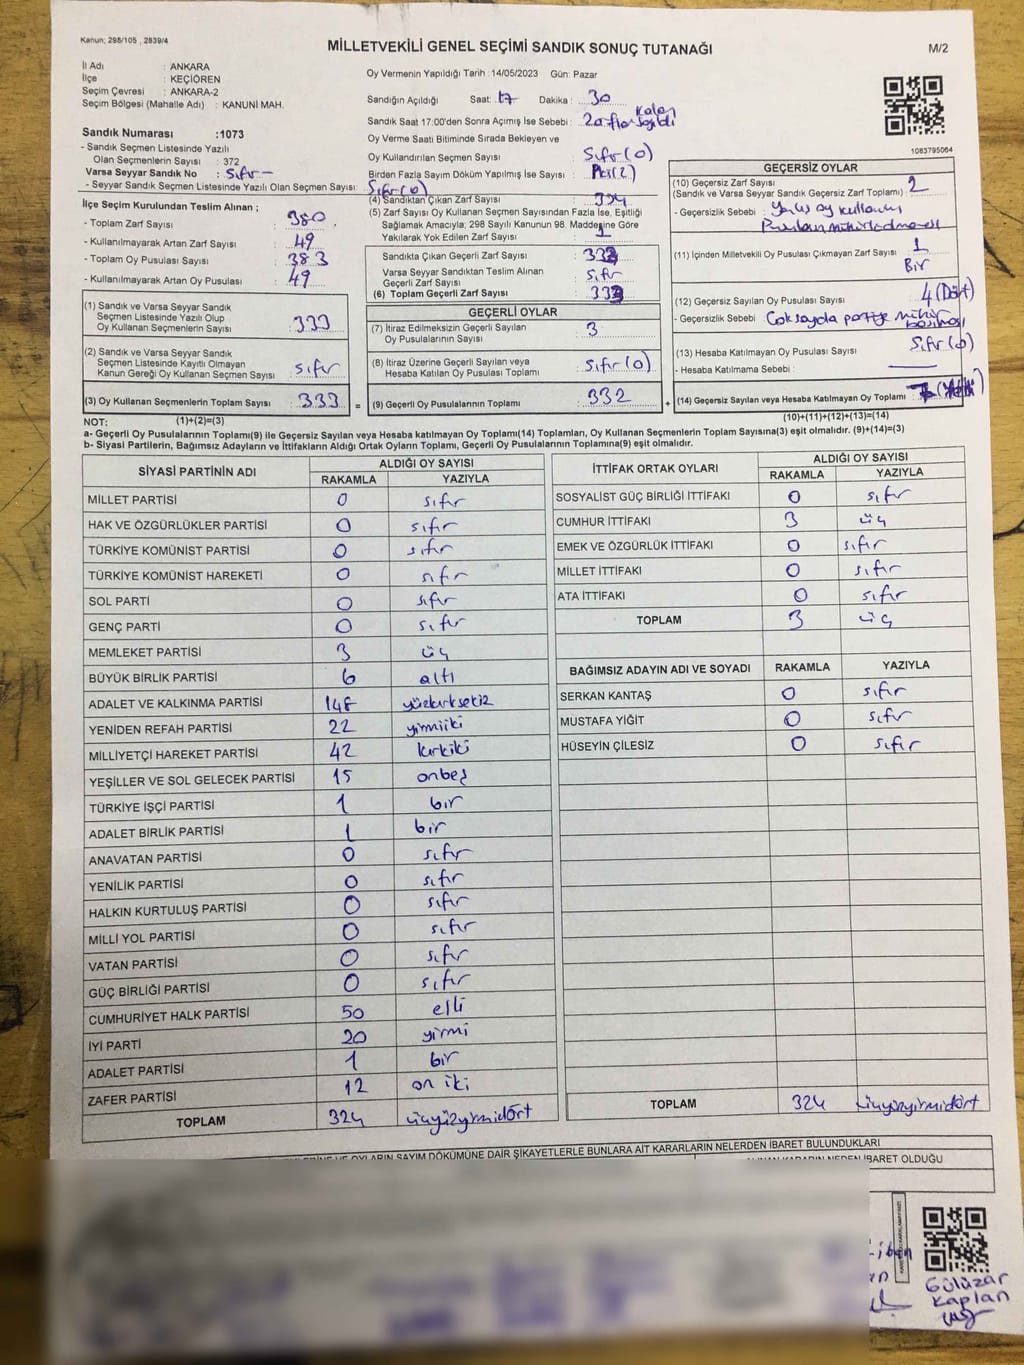 Kanun; 298/105 , 2839/4
MİLLETVEKİLİ GENEL SEÇİMİ SANDIK SONUÇ TUTANAĞI
M/2
İl Adı : ANKARA
İlçe : KEÇİÖREN
Seçim Çevresi : ANKARA-2
Seçim Bölgesi (Mahalle Adı) : KANUNİ MAH.
Sandık Numarası :1073
- Sandık Seçmen Listesinde Yazılı
Olan Seçmenlerin Sayısı : 372
Varsa Seyyar Sandık No : Sıfır -
- Seyyar Sandık Seçmen Listesinde Yazılı Olan Seçmen Sayısı: Sıfır (0)
Oy Vermenin Yapıldığı Tarih :14/05/2023 Gün: Pazar
Sandığın Açıldığı Saat: 17 Dakika : 30
Sandık Saat 17:00'den Sonra Açımış İse Sebebi : Kalan
Zarflar sayıldı
Oy Verme Saati Bitiminde Sırada Bekleyen ve
Oy Kullandırılan Seçmen Sayısı : Sıfır (0)
Birden Fazla Sayım Döküm Yapılmış İse Sayısı : (2)
1083795064
İlçe Seçim Kurulundan Teslim Alınan ;
- Toplam Zarf Sayısı : 380
- Kullanılmayarak Artan Zarf Sayısı : 49
- Toplam Oy Pusulası Sayısı : 383
- Kullanılmayarak Artan Oy Pusulası : 49
(1) Sandık ve Varsa Seyyar Sandık
Seçmen Listesinde Yazılı Olup
Oy Kullanan Seçmenlerin Sayısı : 333
(2) Sandık ve Varsa Seyyar Sandık
Seçmen Listesinde Kayıtlı Olmayan
Kanun Gereği Oy Kullanan Seçmen Sayısı : sıfır
(3) Oy Kullanan Seçmenlerin Toplam Sayısı : 333 =
(4) Sandıktan Çıkan Zarf Sayısı : 334
(5) Zarf Sayısı Oy Kullanan Seçmen Sayısından Fazla İse, Eşitliği
Sağlamak Amacıyla; 298 Sayılı Kanunun 98. Maddesine Göre
Yakılarak Yok Edilen Zarf Sayısı : 1
Sandıkta Çıkan Geçerli Zarf Sayısı :
Varsa Seyyar Sandıktan Teslim Alınan
Geçerli Zarf Sayısı : sıfır
(6) Toplam Geçerli Zarf Sayısı :
GEÇERLİ OYLAR
(7) İtiraz Edilmeksizin Geçerli Sayılan
Oy Pusulalarının Sayısı : 3
(8) İtiraz Üzerine Geçerli Sayılan veya
Hesaba Katılan Oy Pusulası Toplamı : Sıfır (0)
(9) Geçerli Oy Pusulalarının Toplamı : 332 +
GEÇERSİZ OYLAR
(10) Geçersiz Zarf Sayısı
(Sandık ve Varsa Seyyar Sandık Geçersiz Zarf Toplamı) : 2
- Geçersizlik Sebebi : Yanlış oy kullanımı
Pusulanın mühürlenmemesi
(11) İçinden Milletvekili Oy Pusulası Çıkmayan Zarf Sayısı : 1
Bir
(12) Geçersiz Sayılan Oy Pusulası Sayısı : 4 (Dört)
- Geçersizlik Sebebi : Çok sayıda partiye mühür
basılması
(13) Hesaba Katılmayan Oy Pusulası Sayısı : Sıfır (0)
- Hesaba Katılmama Sebebi :
(14) Geçersiz Sayılan veya Hesaba Katılmayan Oy Toplamı : 7 (Yedi)
NOT: (1)+(2)=(3)
(10)+(11)+(12)+(13)=(14)
a- Geçerli Oy Pusulalarının Toplamı(9) ile Geçersiz Sayılan veya Hesaba katılmayan Oy Toplamı(14) Toplamları, Oy Kullanan Seçmenlerin Toplam Sayısına(3) eşit olmalıdır. (9)+(14)=(3)
b- Siyasi Partilerin, Bağımsız Adayların ve İttifakların Aldığı Ortak Oyların Toplamı, Geçerli Oy Pusulalarının Toplamına(9) eşit olmalıdır.
SİYASİ PARTİNİN ADI ALDIĞI OY SAYISI
RAKAMLA YAZIYLA
MİLLET PARTİSİ 0 sıfır
HAK VE ÖZGÜRLÜKLER PARTİSİ 0 sıfır
TÜRKİYE KOMÜNİST PARTİSİ 0 sıfır
TÜRKİYE KOMÜNİST HAREKETİ 0 sıfır
SOL PARTİ 0 sıfır
GENÇ PARTİ 0 sıfır
MEMLEKET PARTİSİ 3 üç
BÜYÜK BİRLİK PARTİSİ 6 altı
ADALET VE KALKINMA PARTİSİ 148 yüzkırksekiz
YENİDEN REFAH PARTİSİ 22 yirmiiki
MİLLİYETÇİ HAREKET PARTİSİ 42 kırkiki
YEŞİLLER VE SOL GELECEK PARTİSİ 15 onbeş
TÜRKİYE İŞÇİ PARTİSİ 1 bir
ADALET BİRLİK PARTİSİ 1 bir
ANAVATAN PARTİSİ 0 sıfır
YENİLİK PARTİSİ 0 sıfır
HALKIN KURTULUŞ PARTİSİ 0 sıfır
MİLLİ YOL PARTİSİ 0 sıfır
VATAN PARTİSİ 0 sıfır
GÜÇ BİRLİĞİ PARTİSİ 0 sıfır
CUMHURİYET HALK PARTİSİ 50 elli
İYİ PARTİ 20 yirmi
ADALET PARTİSİ 1 bir
ZAFER PARTİSİ 12 on iki
TOPLAM 324 üçyüzyirmidört
İTTİFAK ORTAK OYLARI ALDIĞI OY SAYISI
RAKAMLA YAZIYLA
SOSYALİST GÜÇ BİRLİĞİ İTTİFAKI 0 sıfır
CUMHUR İTTİFAKI 3 üç
EMEK VE ÖZGÜRLÜK İTTİFAKI 0 sıfır
MİLLET İTTİFAKI 0 sıfır
ATA İTTİFAKI 0 sıfır
TOPLAM 3 üç
BAĞIMSIZ ADAYIN ADI VE SOYADI RAKAMLA YAZIYLA
SERKAN KANTAŞ 0 sıfır
MUSTAFA YİĞİT 0 sıfır
HÜSEYİN ÇİLESİZ 0 sıfır
TOPLAM 324 üçyüzyirmidört
OYLARIN SAYIM DÖKÜMÜNE DAİR ŞİKAYETLERLE BUNLARA AİT KARARLARIN NELERDEN İBARET BULUNDUKLARI
KARARIN NEDEN İBARET OLDUĞU
Gülüzar
Kaplan